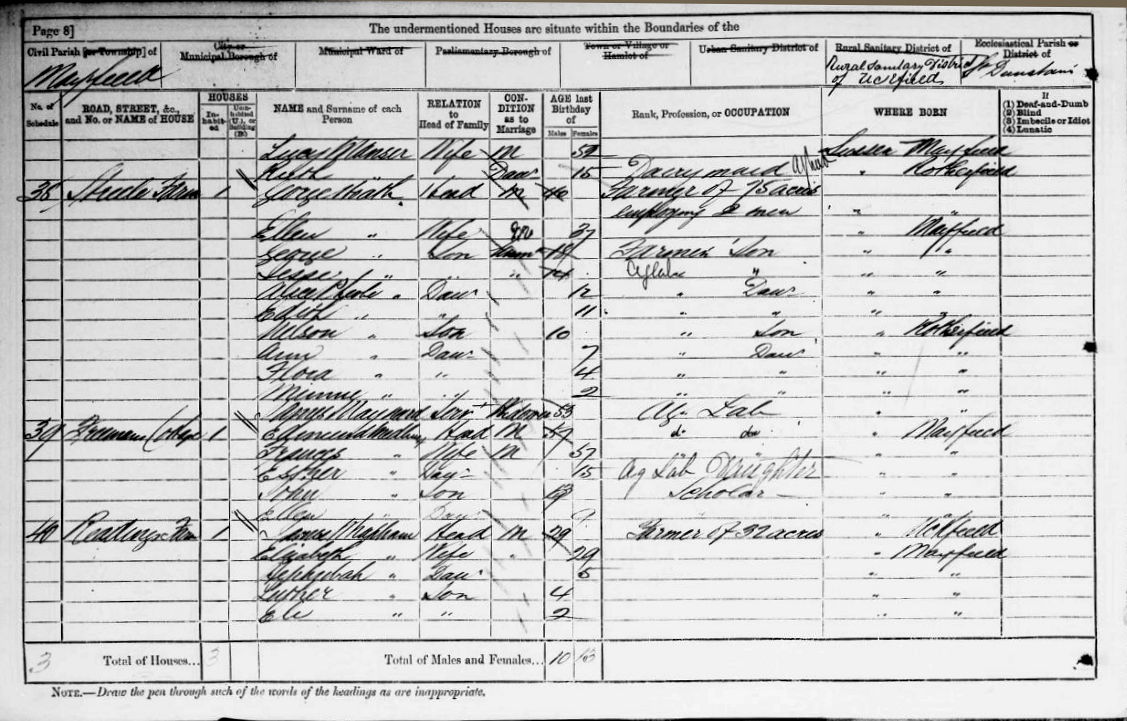 Page 8]
The undermentioned Houses are situate within the Boundaries of the
Civil Parish [or Township] of
City or Municipal Borough of
Municipal Ward of
Parliamentary Borough of
Town or Village or Hamlet of
Urban Sanitary District of
Rural Sanitary District of
Ecclesiastical Parish or District of
Mayfield
Rural Sanitary District of Uckfield
St Dunstans
No. of Schedule
ROAD, STREET, &c., and No. or NAME of HOUSE
HOUSES
In-habit-ed
Unin-habited (U.), or Building (B.)
NAME and Surname of each Person
RELATION to Head of Family
CON-DITION as to Marriage
AGE last Birthday of
Males
Females
Rank, Profession, or OCCUPATION
WHERE BORN
If
(1) Deaf-and-Dumb
(2) Blind
(3) Imbecile or Idiot
(4) Lunatic
Lucy Manser Wife M Sussex Mayfield
Ruth Daur 15 Dairy maid " Rotherfield
38 Steele Farm 1 George Head M Farmer of 75 acres
employing 2 men "
Ellen " Wife 37 " Mayfield
George " Son Farmer's Son " "
Jesse " " " " " "
Alice " Daur 12 " Daur " "
Edith " " 11 " " " "
Nelson " Son 10 " Son " Rotherfield
Ann " Daur 7 " Daur " "
Flora " " 4 " " " "
Minnie " " 2 " "
James Maynard Serv Widower 53 Ag. Lab "
39 Freemans Cottage 1 Edmund Head M do do " Mayfield
Frances " Wife M 57 " "
Esther " Daur 15 Ag Lab Daughter " "
John " Son 13 Scholar " "
Ellen " Daur 9 " "
40 Readings Farm 1 James Head M 29 Farmer of 32 acres "
Elizabeth " Wife " 29 " Mayfield
Hephzibah " Daur 5 " "
Luther " Son 4 " "
Eli " " 2 " "
3 Total of Houses... 3
Total of Males and Females... 10 13
NOTE.—Draw the pen through such of the words of the headings as are inappropriate.